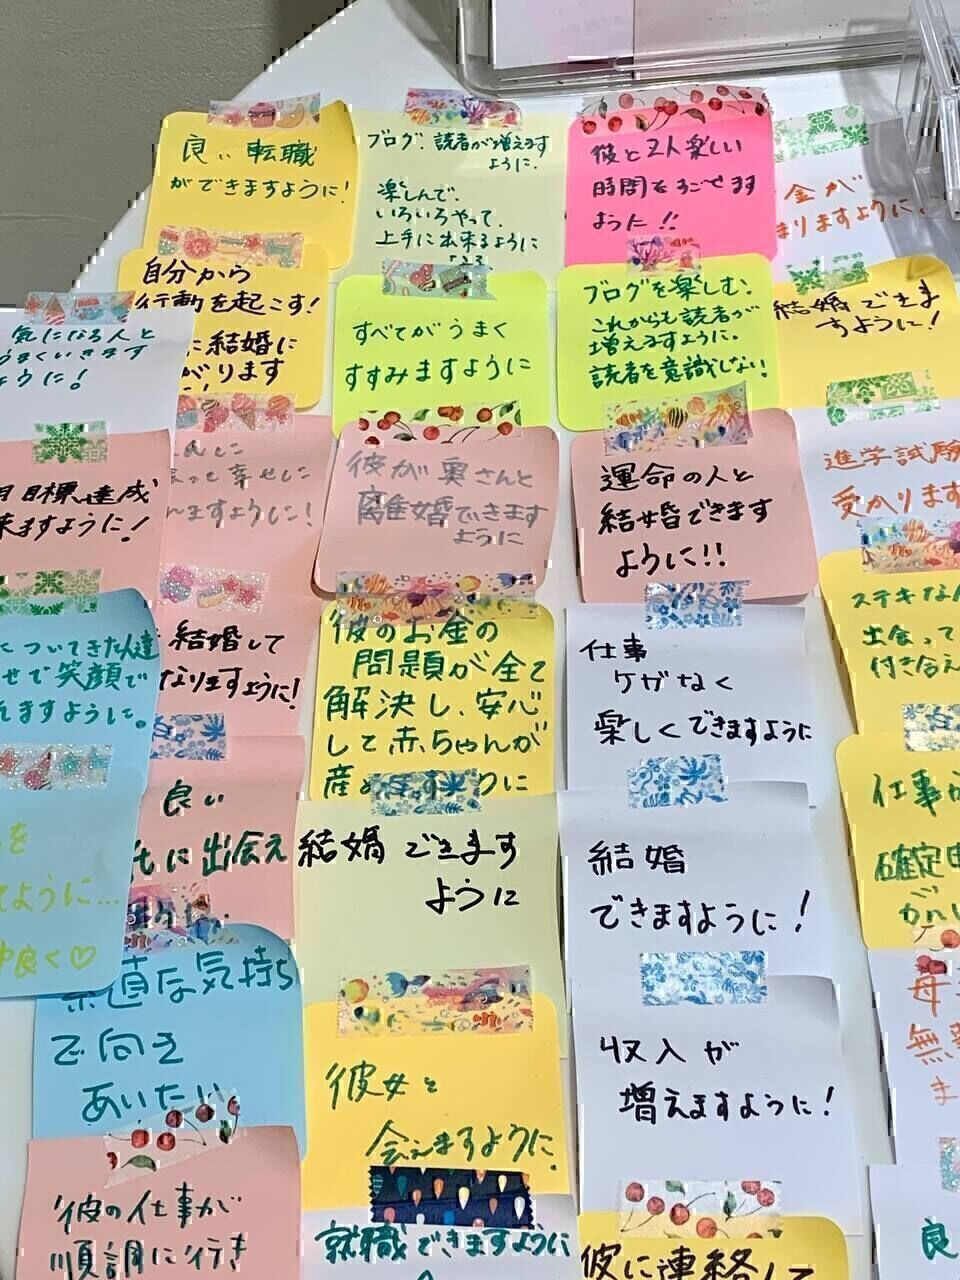 良い転職
ができますように!
ブログ、読者が増えます
ように、
楽しんで、
いろいろやって、
上手に出来るように
彼と2人楽しい
時間をすごせます
ように!!
金が
まりますように。
自分から
行動を起こす!
に結婚に
がります
すべてがうまく
すすみますように
ブログを楽しむ。
これからも読者が
増えますように。
読者を意識しない!
結婚できま
すように!
気になる人と
うまくいきます
ように!
目標達成
来ますように!
って幸せに
ますように!
彼が奥さんと
離婚できます
ように
運命の人と
結婚できます
ように!!
進学試験
受かります
についてきた人達
せで笑顔で
れますように。
結婚して
なりますように!
彼のお金の
問題が全て
解決し、安心
して赤ちゃんが
産
に
仕事
ケガなく
楽しくできますように
ステキな
出会って
付き合え
良い
に出会え
結婚できます
ように
結婚
できますように!
仕事が
確定申
を
てように…
仲良く♡
素直な気持ち
で向き
あいたい
彼女と
会えますように。
収入が
増えますように!
母
無
ま
彼の仕事が
順調に行き
就職できますように
彼に連絡して
良